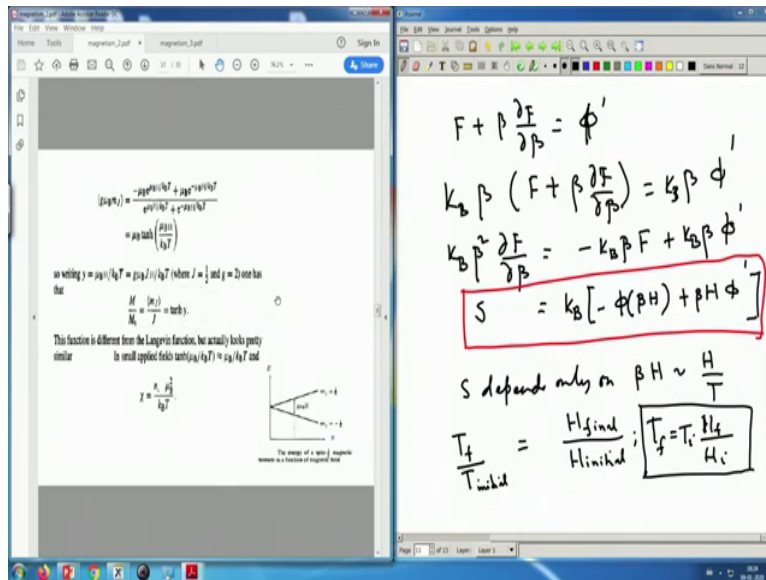 magnetism_2.pdf - Adobe Acrobat Reader DC
File Edit View Window Help
Home Tools magnetism_2.pdf × magnetism_3.pdf Sign In
Share
⟨gμ_B m_J⟩ = (-μ_B e^{μ_B B/k_B T} + μ_B e^{-μ_B B/k_B T}) / (e^{μ_B B/k_B T} + e^{-μ_B B/k_B T})
= μ_B tanh (μ_B B / k_B T)
so writing y = μ_B B/k_B T = gμ_B JB/k_B T (where J = 1/2 and g = 2) one has
that
M/M_s = ⟨m_J⟩/J = tanh y.
This function is different from the Langevin function, but actually looks pretty
similar In small applied fields tanh(μ_B/k_B T) ≈ μ_B/k_B T and
χ = n μ_B² / k_B T.
The energy of a spin-1/2 magnetic
moment as a function of magnetic field
Xournal
File Edit View Journal Tools Options Help
Sans Normal 12
F + β ∂F/∂β = ϕ'
k_B β (F + β ∂F/∂β) = k_B β ϕ'
k_B β² ∂F/∂β = -k_B β F + k_B β ϕ'
S = k_B [-ϕ(βH) + βH ϕ']
S depends only on βH ~ H/T
T_f/T_initial = H_final/H_initial ; T_f = T_i H_f/H_i
Page 11 of 13 Layer: Layer 1